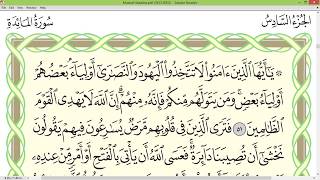 الجزء السادس
سورة المائدة
۞ يَٰٓأَيُّهَا ٱلَّذِينَ ءَامَنُوا۟ لَا تَتَّخِذُوا۟ ٱلْيَهُودَ وَٱلنَّصَٰرَىٰٓ أَوْلِيَآءَ بَعْضُهُمْ
أَوْلِيَآءُ بَعْضٍ وَمَن يَتَوَلَّهُم مِّنكُمْ فَإِنَّهُۥ مِنْهُمْ إِنَّ ٱللَّهَ لَا يَهْدِى ٱلْقَوْمَ
ٱلظَّٰلِمِينَ ٥١ فَتَرَى ٱلَّذِينَ فِى قُلُوبِهِم مَّرَضٌ يُسَٰرِعُونَ فِيهِمْ يَقُولُونَ
نَخْشَىٰٓ أَن تُصِيبَنَا دَآئِرَةٌ فَعَسَى ٱللَّهُ أَن يَأْتِىَ بِٱلْفَتْحِ أَوْ أَمْرٍ مِّنْ عِندِهِۦ